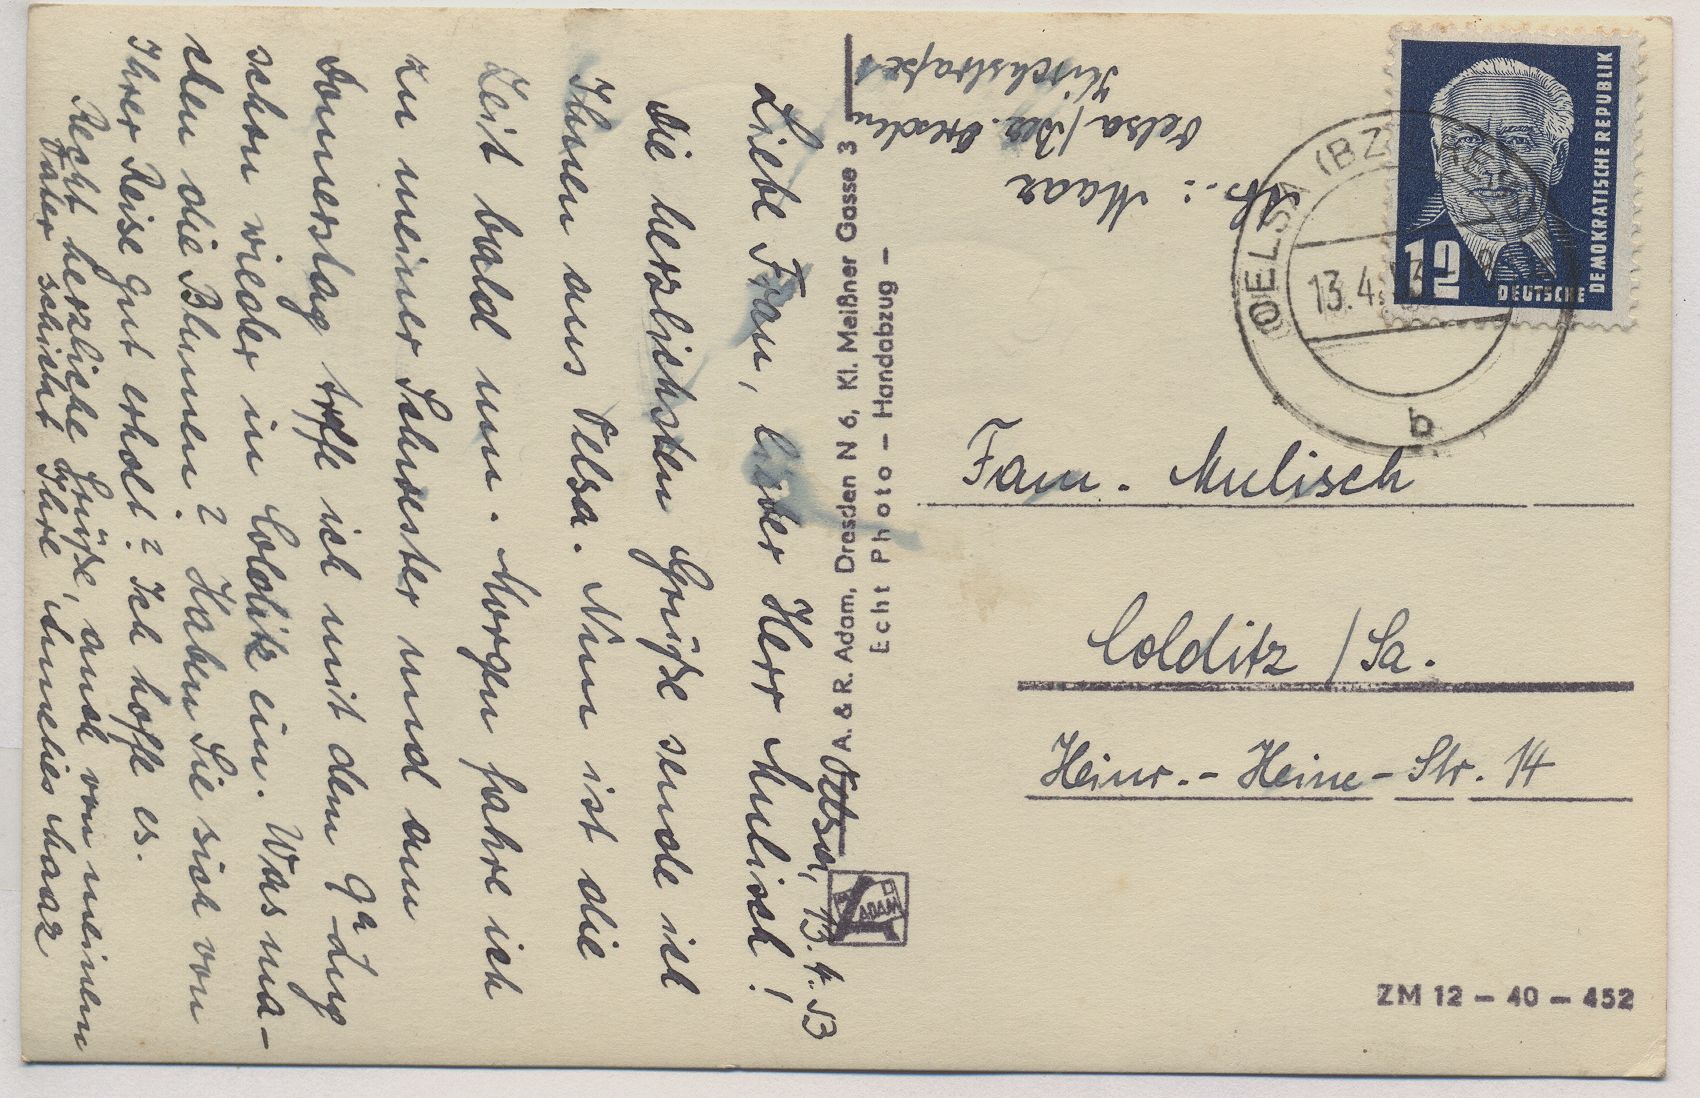 Oelsa, 13.4.53
Liebe Frau, lieber Herr Mulisch!
Die herzlichsten Grüße sende ich
Ihnen aus Oelsa. Nun ist die
Zeit bald um. Morgen fahre ich
zu meiner Schwester und am
Donnerstag treffe ich mit dem 9h Zug
schon wieder in Colditz ein. Was ma-
chen die Blumen? Haben Sie sich von
Ihrer Reise gut erholt? Ich hoffe es.
Recht herzliche Grüße, auch von meinem
Vater schickt Ihre Annelies Maaz
A. & R. Adam, Dresden N 6, Kl. Meißner Gasse 3
Echt Photo – Handabzug –
ADAM
Abs.: Maaz
Oelsa/Bez. Dresden
Kirchstraße 1
DEUTSCHE
DEMOKRATISCHE REPUBLIK
12
OELSA (BZ. DRESDEN)
13.4.53
b
Fam. Mulisch
Colditz /Sa.
Heinr.-Heine-Str. 14
ZM 12 – 40 – 452